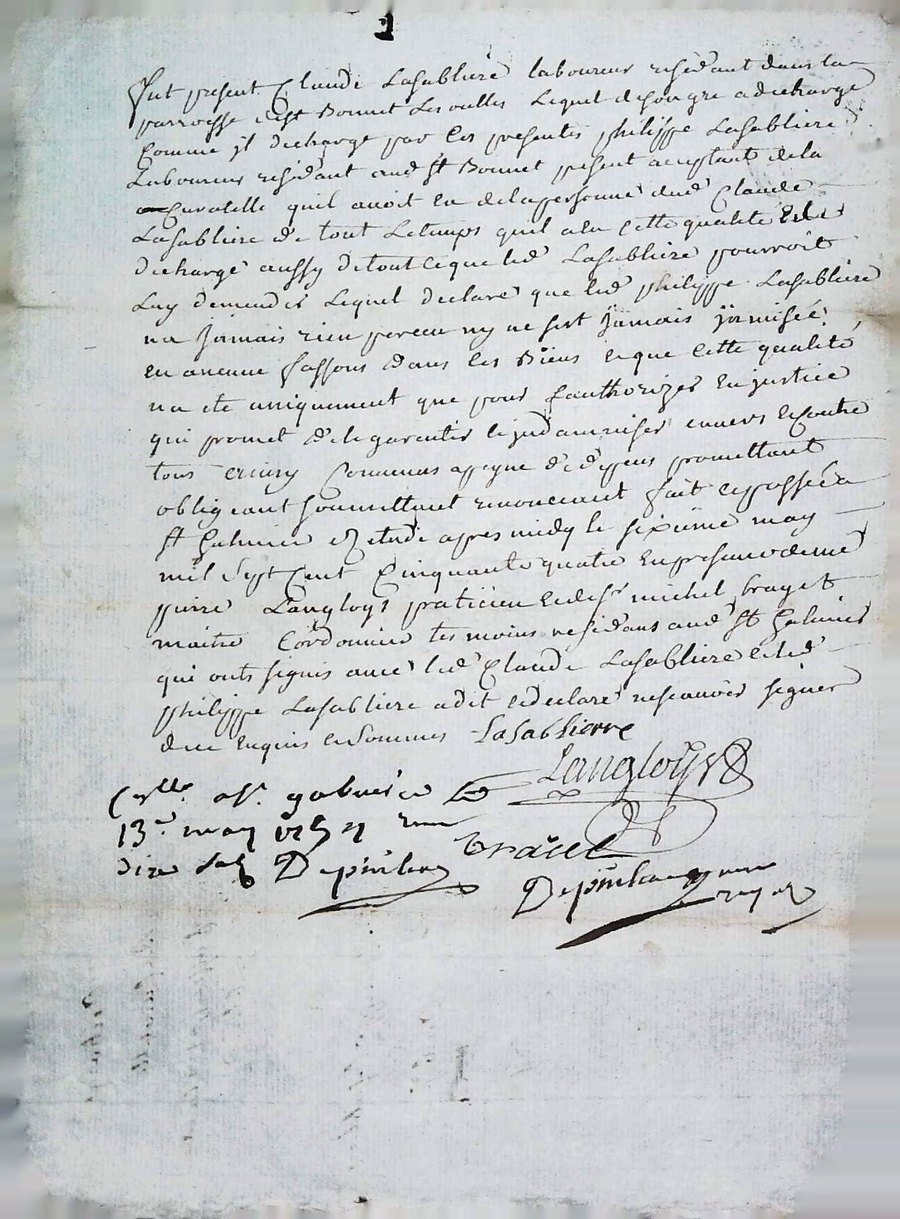 1
Fut present Claude Lasabliere laboureur residant dans la
parroisse de st Bonnet Les oulles Lequel de son gre a decharge
Comme jl decharge par ces presentes philippe Lasabliere
Laboureur residant aud st Bonnet present acceptant de la
Curatelle quil avoit eu de la personne dud Claude
Lasabliere de tout Letemps quil a eu cette qualite Et le
decharge aussy de tout ce que led Lasabliere pourroit
Luy demander Lequel declare que led philippe Lasabliere
na jamais rien perceu ny ne sest jamais jmmisée
en aucune fassons dans ses Biens et que cette qualité
na ete uniquement que pour Lauthorizer En justice
qui promet de le garentir et jndamniser envers et Contre
tous apeyne de depens promettant
obligeant soumettant renonceant fait et passée a
st Galmier Estude apres midy le sixieme may
mil sept Cent Cinquante quatre En presance de me
pierre Langloys praticien et de sr michel brayet
maitre Cordonnier tesmoins residans aud st Galmier
qui onts signés avec led Claude Lasabliere et led
philippe Lasabliere a dit et declaré ne scavoir signer
de ce Enquis et Sommes Lasablierre
Langloys
13e may
dix sols Depinhac
Depinhac